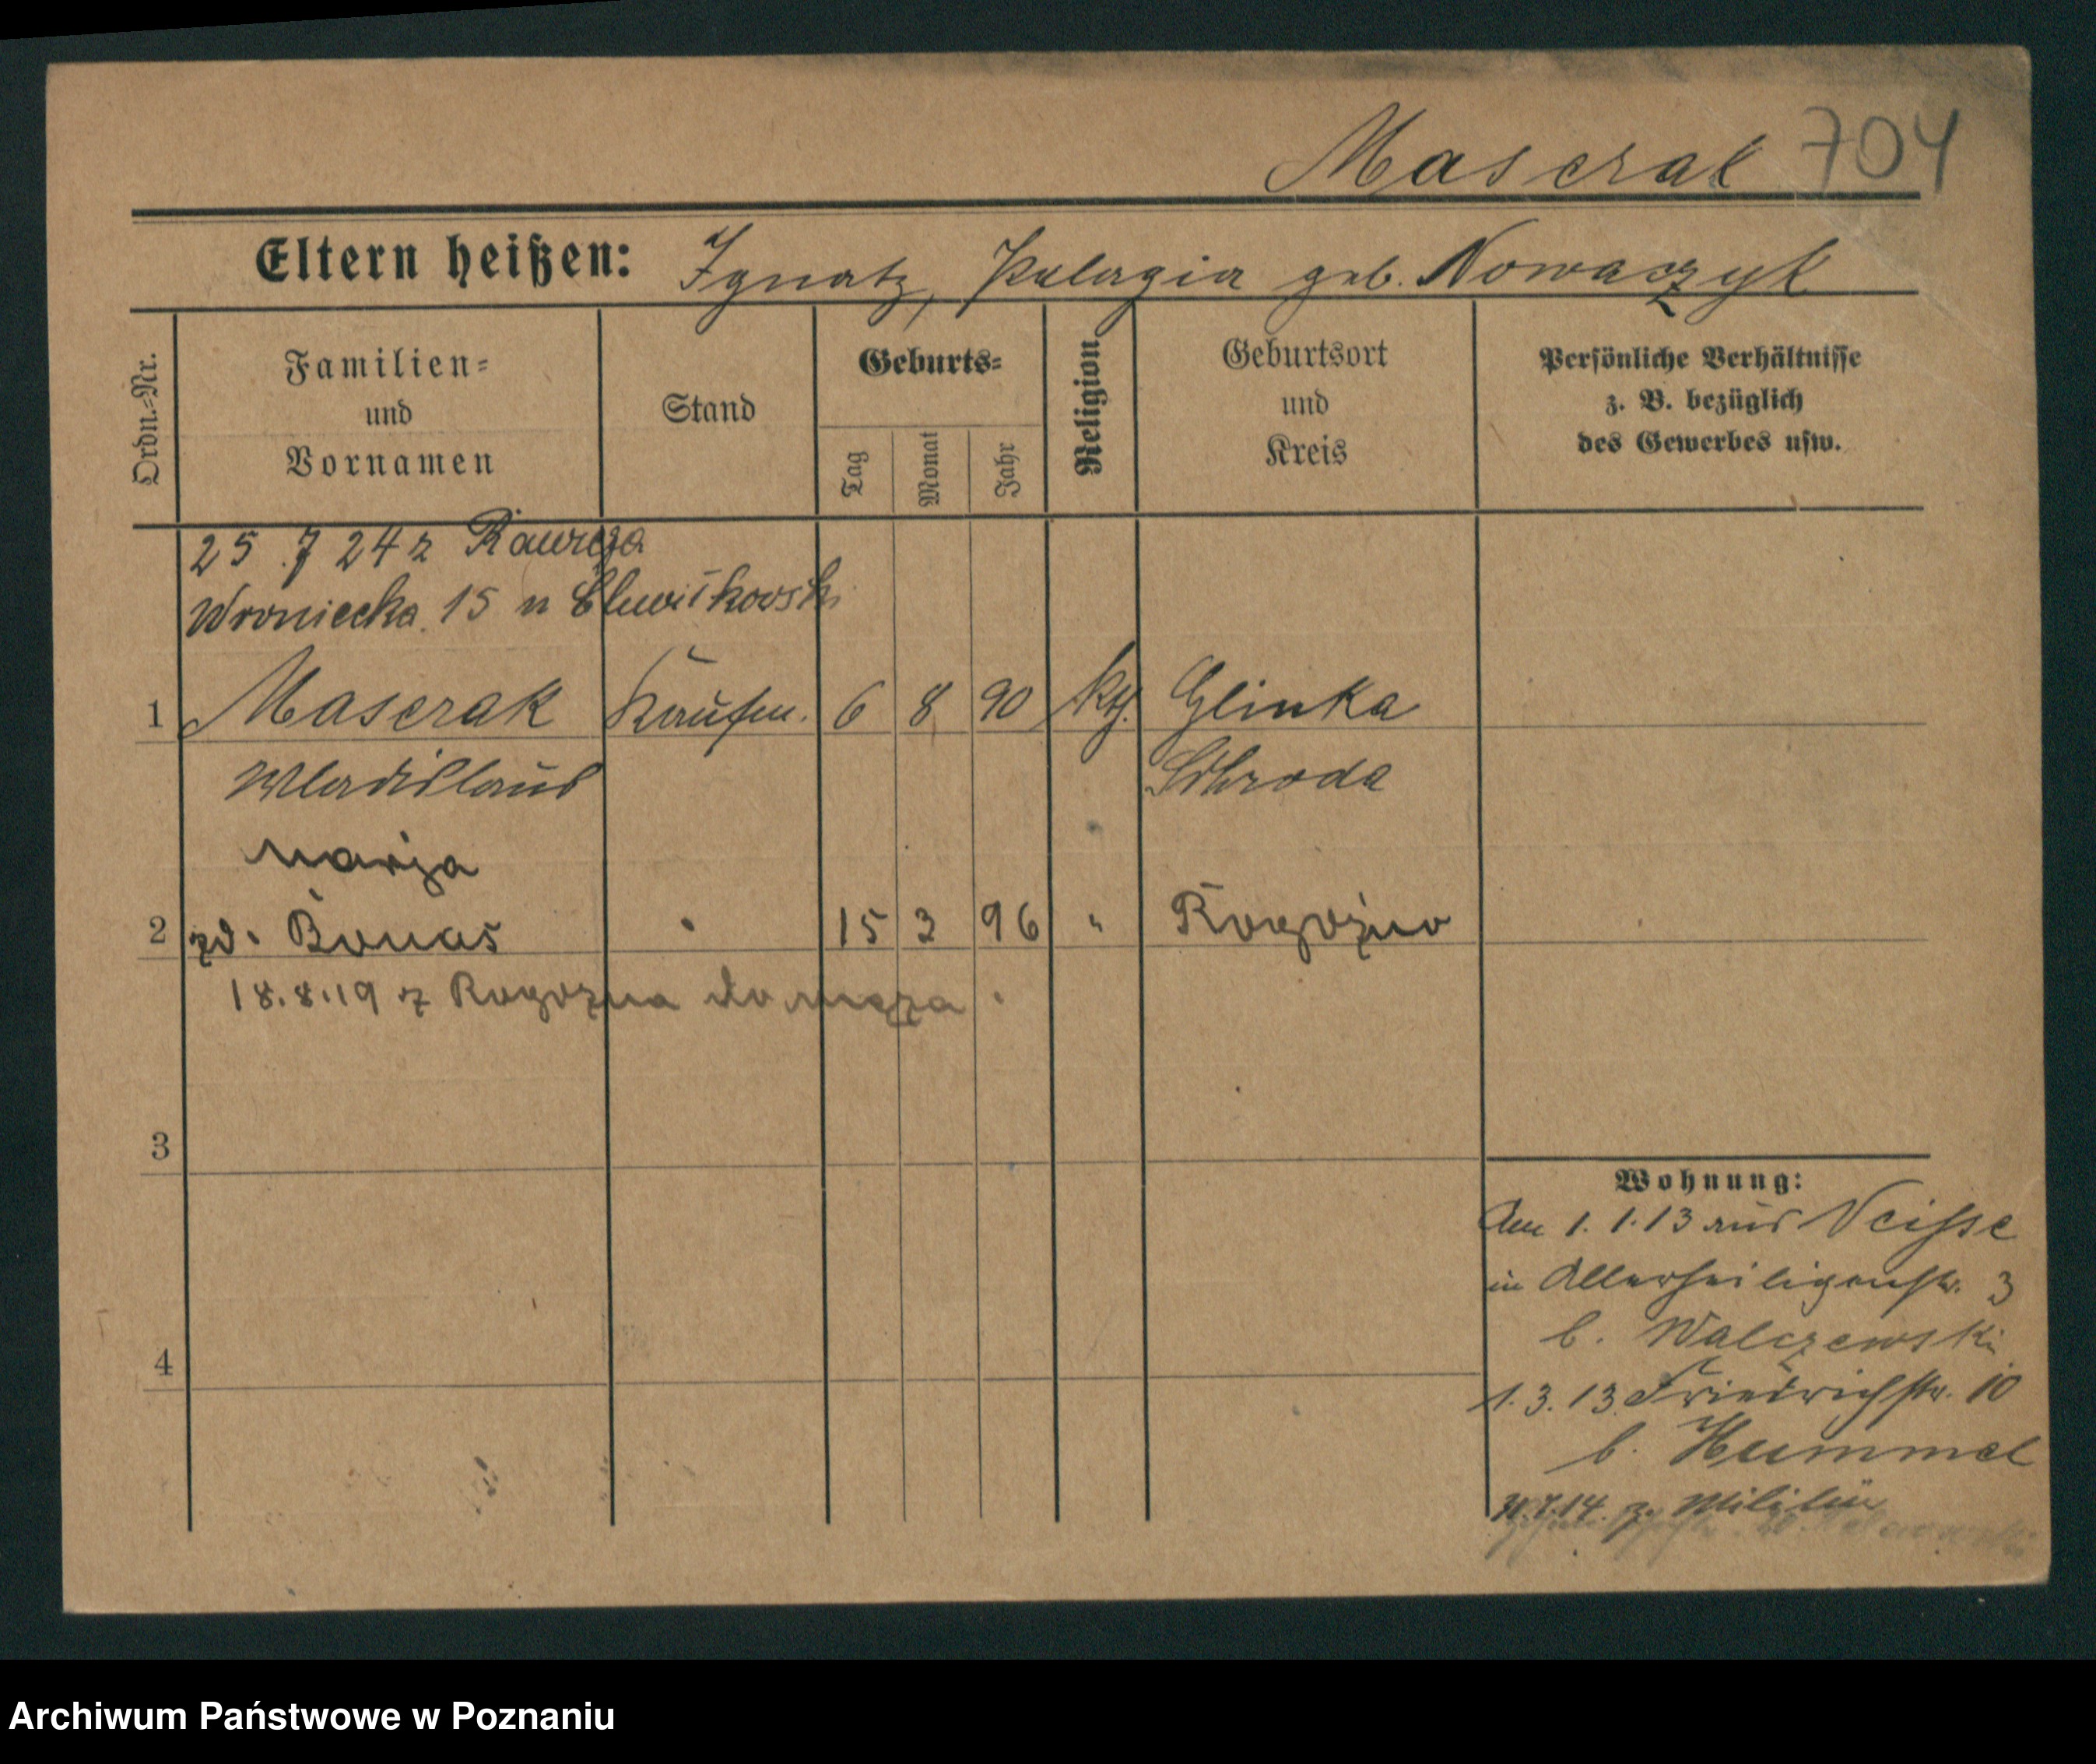 Mascrak 704
Eltern heißen: Ignatz, Pelagia geb. Nowaczyk
Ordn.=Nr.
Familien=
und
Vornamen
Stand
Geburts=
Tag
Monat
Jahr
Religion
Geburtsort
und
Kreis
Persönliche Verhältnisse
z. B. bezüglich
des Gewerbes usw.
25 7 24 z
Wroniecka 15 u
1 Mascrak Kaufm. 6 8 90 kth. Glinka
Wladislaus Schroda
Marja
2 zd. Bonas " 15 3 96 " Rogoźno
18.8.19 z Rogoźna do męża
3
4
Wohnung:
Am 1.1.13 aus Neisse
in Allerheiligenstr. 3
b. Walczewski
1.3.13 Friedrichstr. 10
b. Hummel
31.7.14. z. Militär
Archiwum Państwowe w Poznaniu